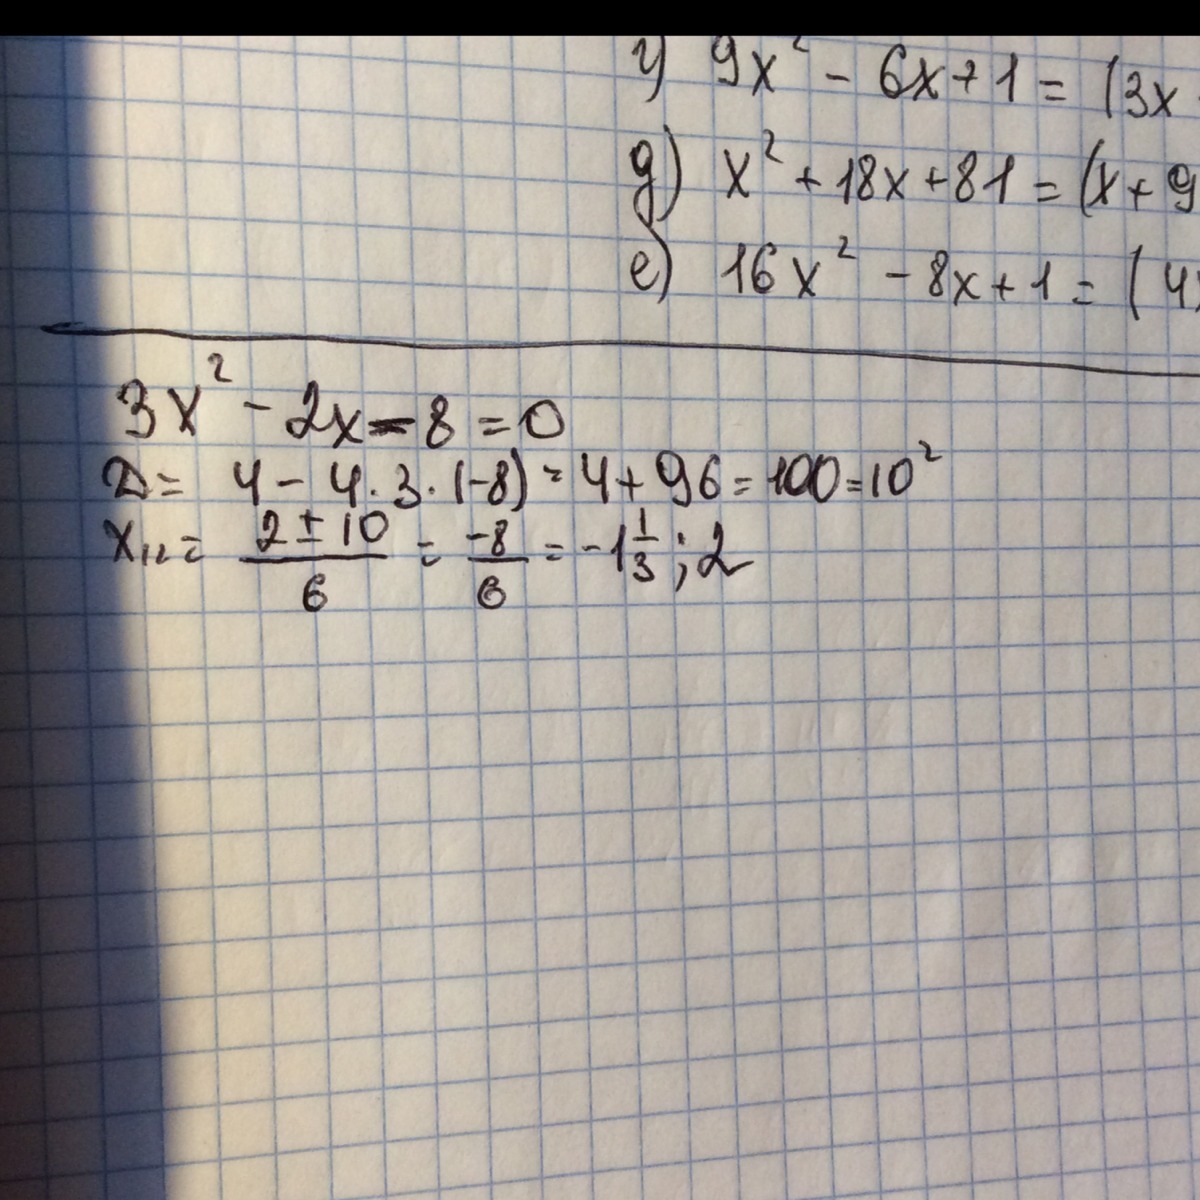 у) 9x² - 6x + 1 = (3x
д) x² + 18x + 81 = (x + 9
е) 16x² - 8x + 1 = (4x
3x² - 2x - 8 = 0
D = 4 - 4 · 3 · (-8) = 4 + 96 = 100 = 10²
x₁₂ = (2 ± 10)/6 = -8/6 = -1 1/3; 2